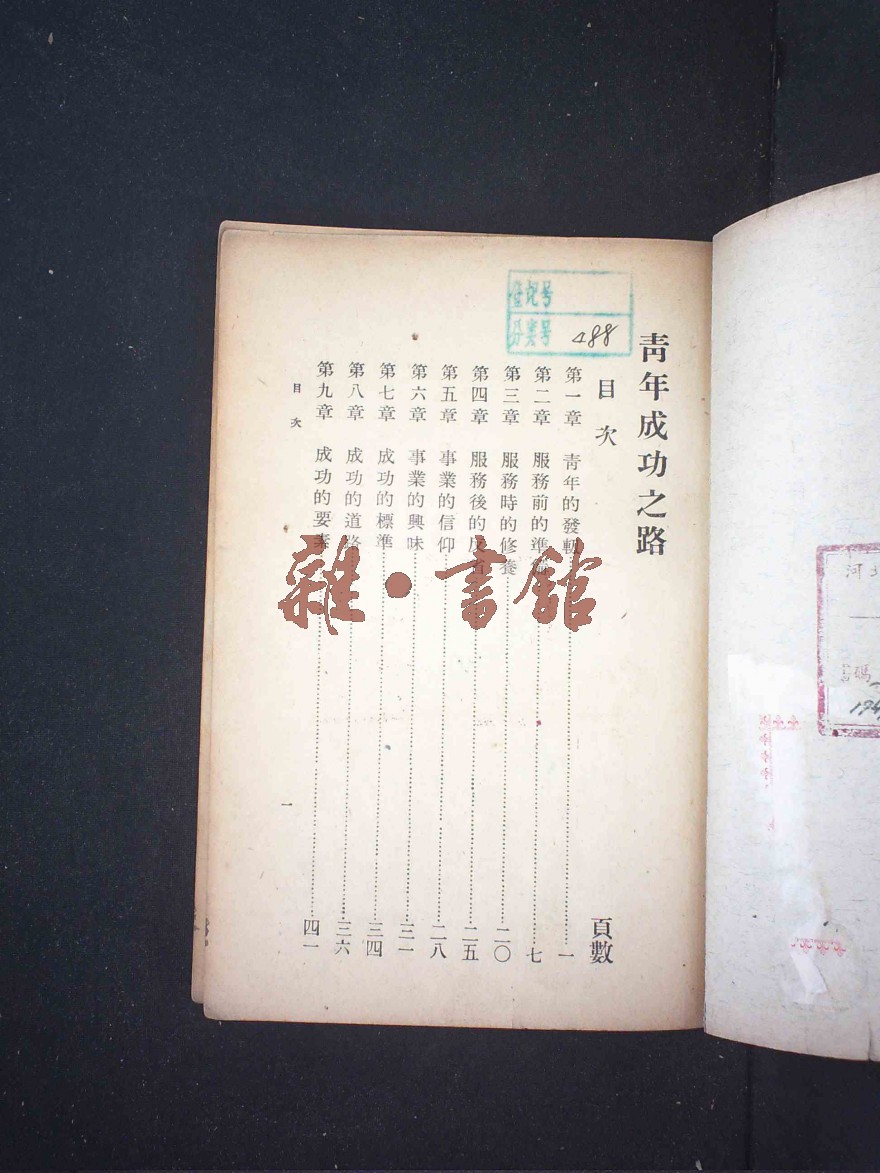 青年成功之路
目次
頁數
第一章 青年的發軔 一
第二章 服務前的準備 七
第三章 服務時的修養 二〇
第四章 服務後的反省 二五
第五章 事業的信仰 二八
第六章 事業的興味 三一
第七章 成功的標準 三四
第八章 成功的道路 三六
第九章 成功的要素 四一
目次
一
登記号
分类号 488
雜·書館
河北
号碼